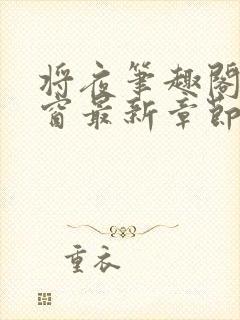 将夜笔趣阁
窗最新章节
重衣